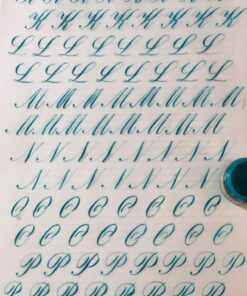 K K K K K K K
K K K K K K
L L L L L L L L
L L L L L L L L
M M M M M M M M M
M M M M M M M M
N N N N N N N N
N N N N N N N
O O O O O O O O O
O O O O O O O O
P P P P P P P P
P P P P P P P P